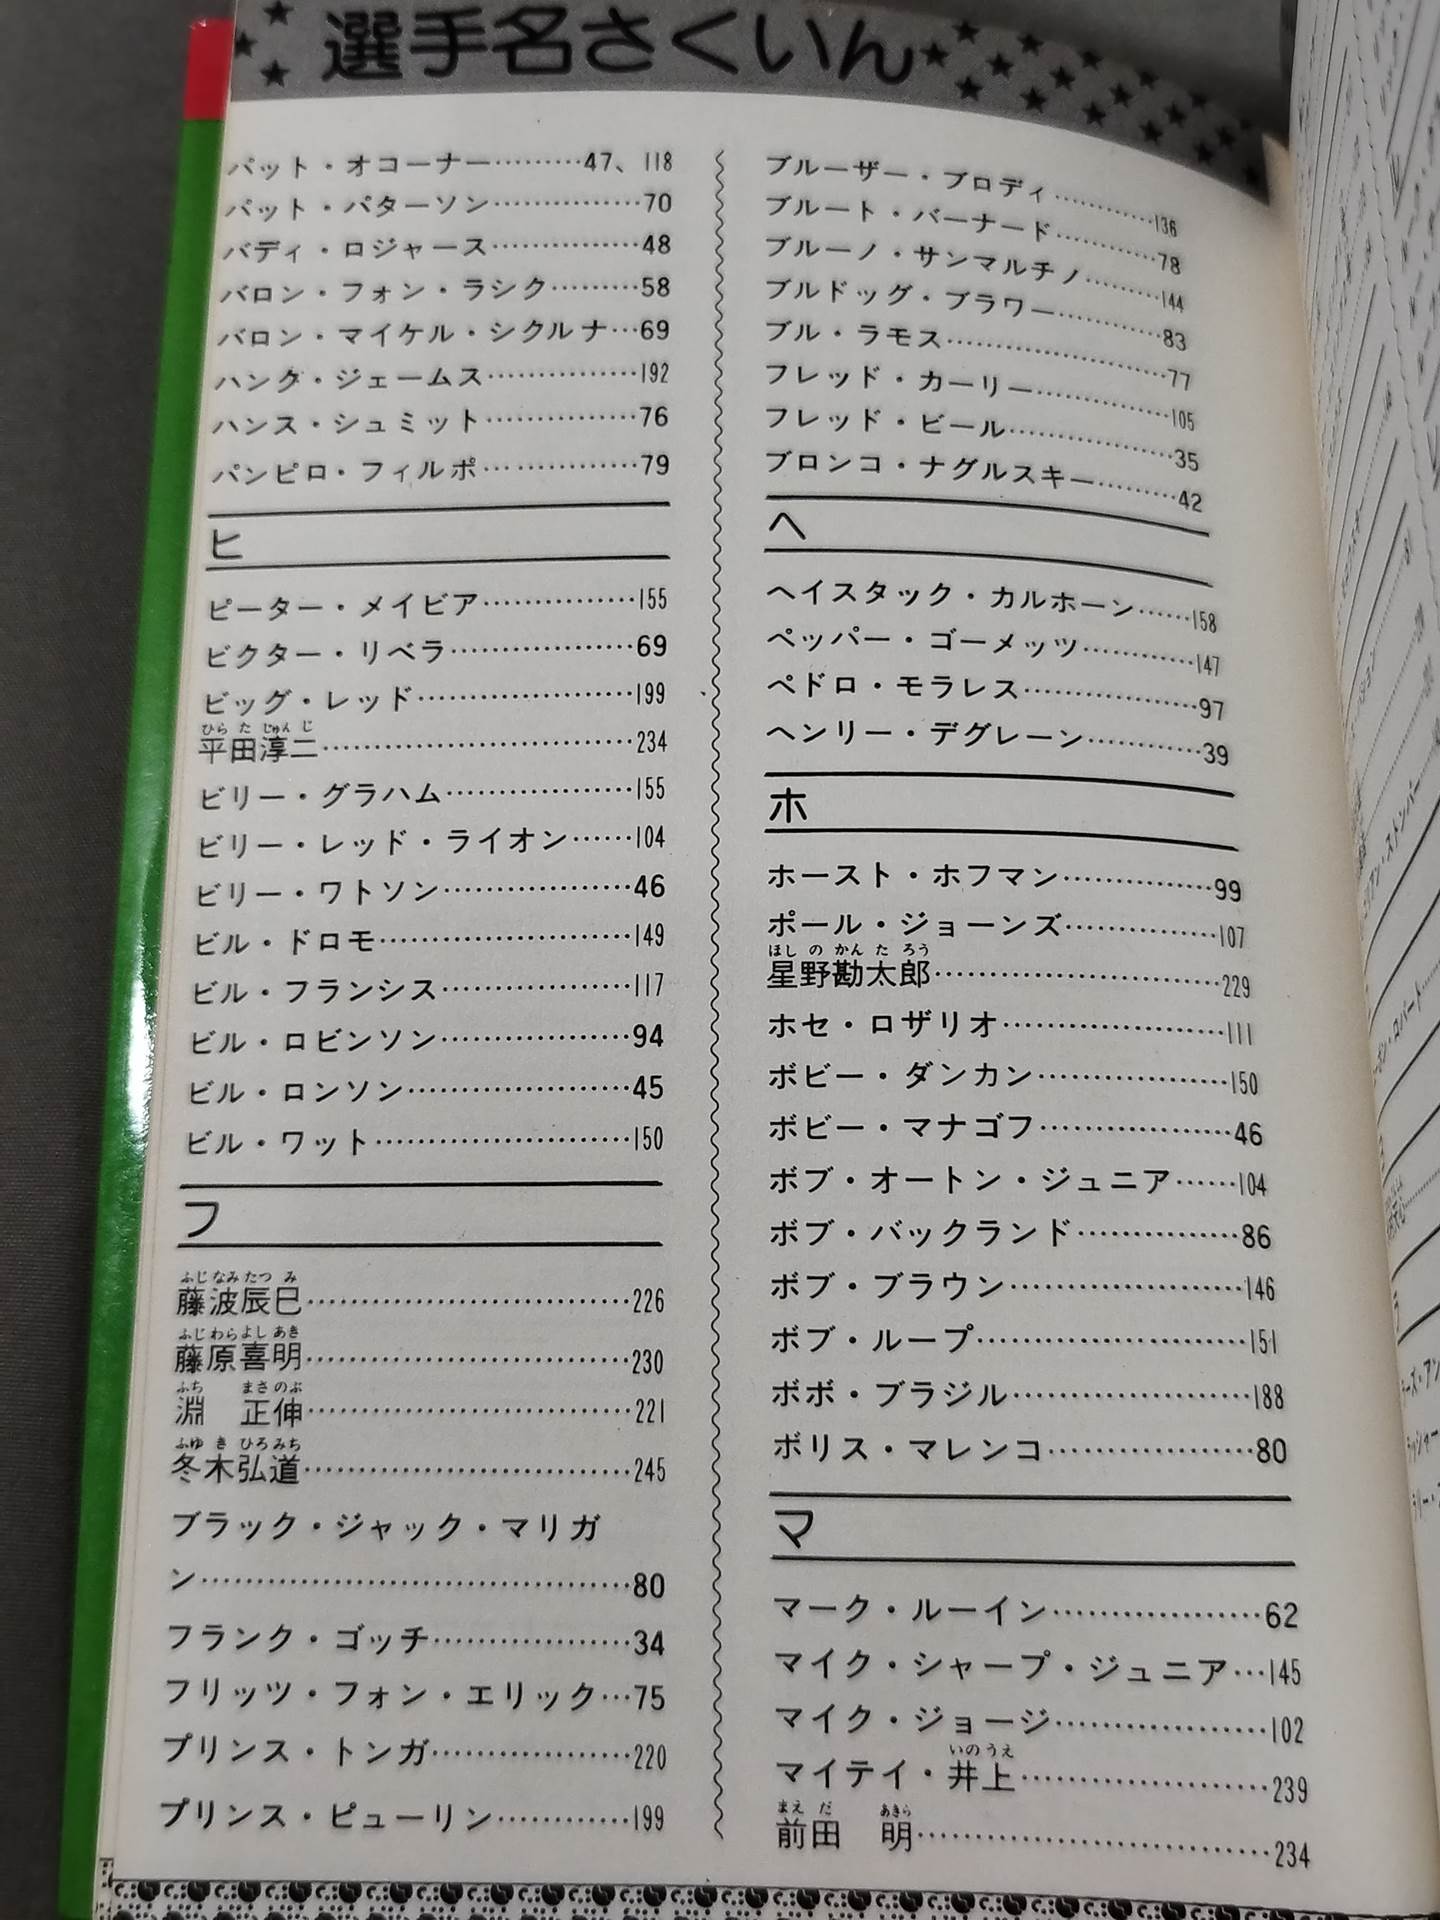 選手名さくいん
パット・オコーナー………47、118
パット・パターソン……………70
バディ・ロジャース……………48
バロン・フォン・ラシク………58
バロン・マイケル・シクルナ…69
ハンク・ジェームス……………192
ハンス・シュミット……………76
パンピロ・フィルポ……………79
ヒ
ピーター・メイビア……………155
ビクター・リベラ………………69
ビッグ・レッド…………………199
ひらたじゅんじ
平田淳二…………………………234
ビリー・グラハム………………155
ビリー・レッド・ライオン……104
ビリー・ワトソン………………46
ビル・ドロモ……………………149
ビル・フランシス………………117
ビル・ロビンソン………………94
ビル・ロンソン…………………45
ビル・ワット……………………150
フ
ふじなみたつみ
藤波辰巳…………………………226
ふじわらよしあき
藤原喜明…………………………230
ふち まさのぶ
淵 正伸…………………………221
ふゆきひろみち
冬木弘道…………………………245
ブラック・ジャック・マリガ
ン…………………………………80
フランク・ゴッチ………………34
フリッツ・フォン・エリック…75
プリンス・トンガ………………220
プリンス・ピューリン…………199
ブルーザー・ブロディ…………136
ブルート・バーナード…………78
ブルーノ・サンマルチノ………144
ブルドッグ・ブラワー…………83
ブル・ラモス……………………77
フレッド・カーリー……………105
フレッド・ビール………………35
ブロンコ・ナグルスキー………42
ヘ
ヘイスタック・カルホーン……158
ペッパー・ゴーメッツ…………147
ペドロ・モラレス………………97
ヘンリー・デグレーン…………39
ホ
ホースト・ホフマン……………99
ポール・ジョーンズ……………107
ほしのかんたろう
星野勘太郎………………………229
ホセ・ロザリオ…………………111
ボビー・ダンカン………………150
ボビー・マナゴフ………………46
ボブ・オートン・ジュニア……104
ボブ・バックランド……………86
ボブ・ブラウン…………………146
ボブ・ループ……………………151
ボボ・ブラジル…………………188
ボリス・マレンコ………………80
マ
マーク・ルーイン………………62
マイク・シャープ・ジュニア…145
マイク・ジョージ………………102
いのうえ
マイテイ・井上…………………239
まえだ あきら
前田 明…………………………234